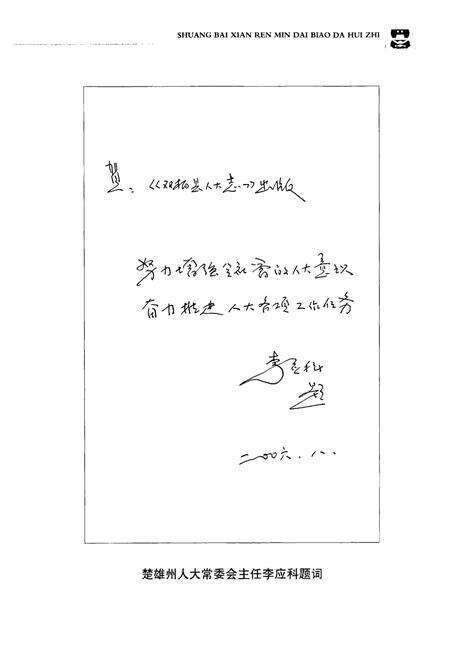 SHUANG BAI XIAN REN MIN DAI BIAO DA HUI ZHI
贺：《双柏县人大志》出版
努力增强全社会的人大意识
奋力推进人大各项工作任务
李应科
题
二〇〇六.八.
楚雄州人大常委会主任李应科题词